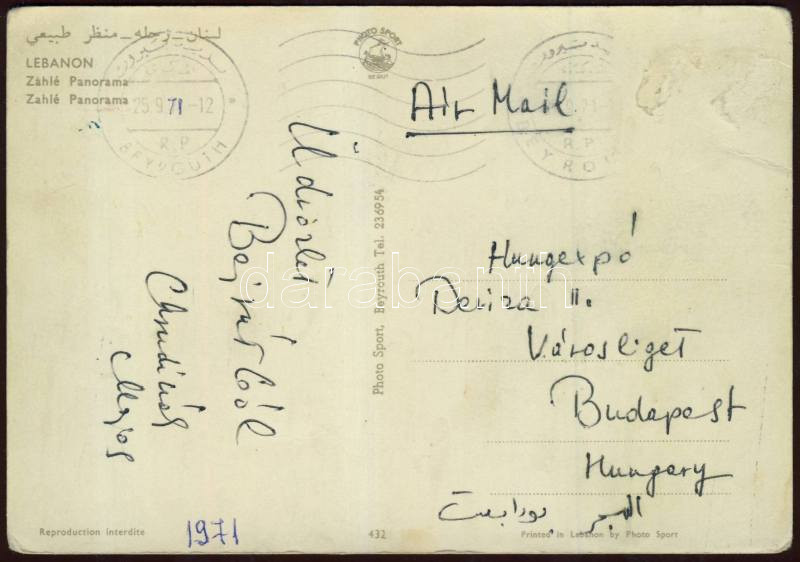 لبنان - زحله - منظر طبيعي
LEBANON
Zahlé Panorama
Zahlé Panorama
25.9.71-12
R.P.
BEYROUTH
PHOTO SPORT
BEIRUT
Air Mail
R.P.
BEYROUTH
Üdvözlet
Bejrútból
Photo Sport, Beyrouth Tel. 236954
Hungexpó
II.
Városliget
Budapest
Hungary
بودابست المجر
darabanth
Reproduction interdite
1971
432
Printed in Lebanon by Photo Sport